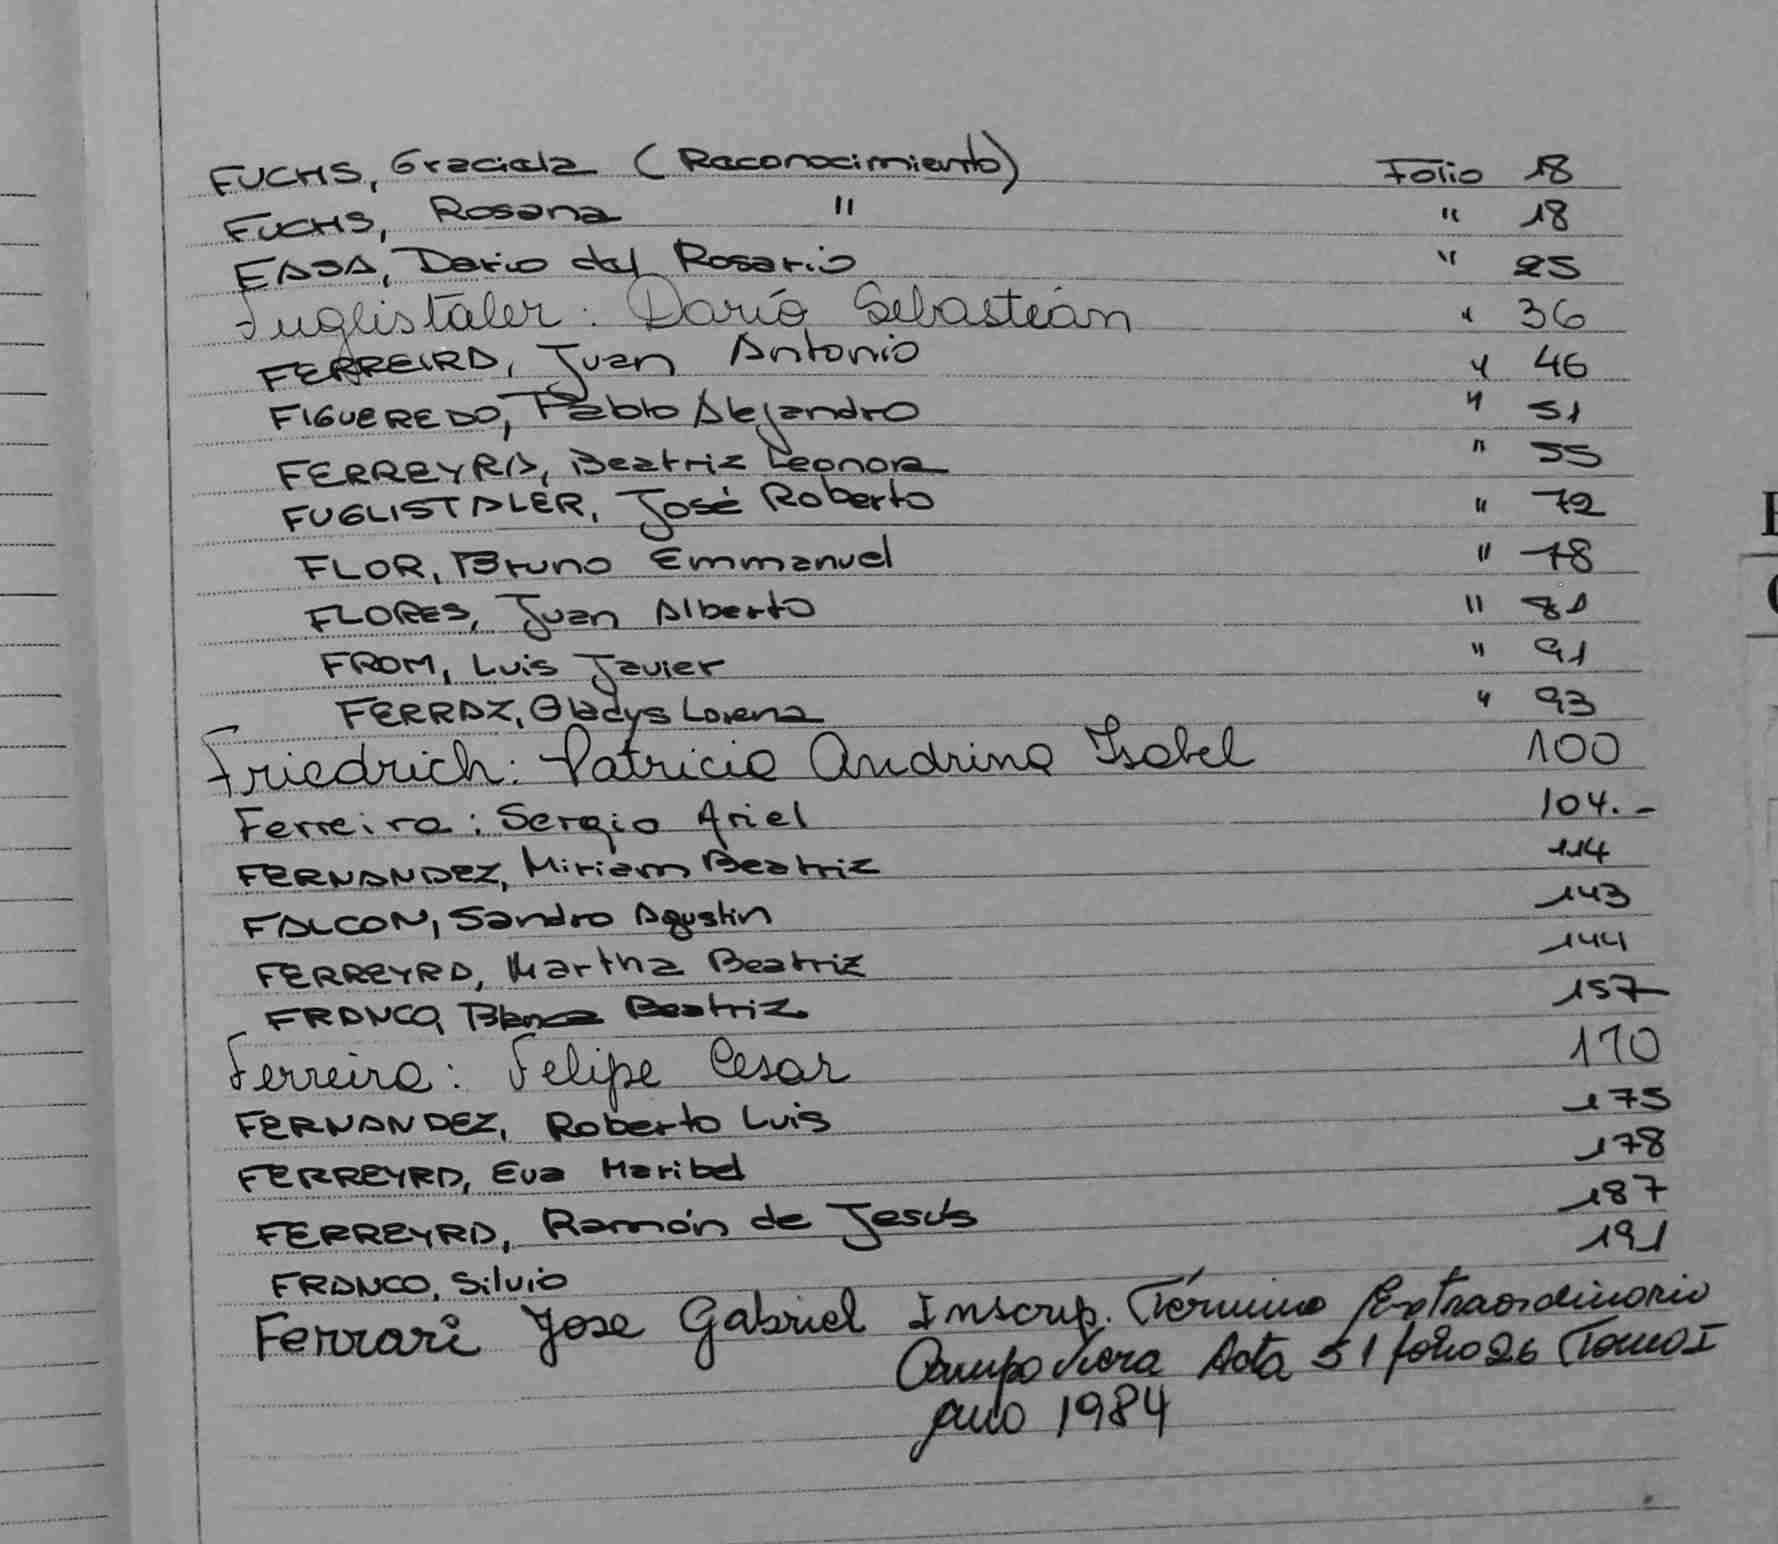 FUCHS, Graciela (Reconocimiento) Folio 18
FUCHS, Rosana " " 18
Dario del Rosario " 25
Fuglistaler: Darío Sebastián " 36
FERREIRA, Juan Antonio " 46
FIGUEREDO, Pablo Alejandro " 51
FERREYRA, Beatriz Leonora " 55
FUGLISTALER, José Roberto " 72
FLOR, Bruno Emmanuel " 78
FLORES, Juan Alberto " 81
FROM, Luis Javier " 91
FERRAZ, Gladys Lorena " 93
Friedrich: Patricia Andrina Isabel 100
Ferreira: Sergio Ariel 104.-
FERNANDEZ, Miriam Beatriz 114
FALCON, Sandro Agustin 143
FERREYRA, Martha Beatriz 144
FRANCO, Blanca Beatriz 157
Ferreira: Felipe Cesar 170
FERNANDEZ, Roberto Luis 175
FERREYRA, Eva Maribel 178
FERREYRA, Ramón de Jesús 187
FRANCO, Silvio 191
Ferrari Jose Gabriel Inscrip. Término Extraordinario
Campo Viera Acta 51 folio 26 Tomo I
año 1984